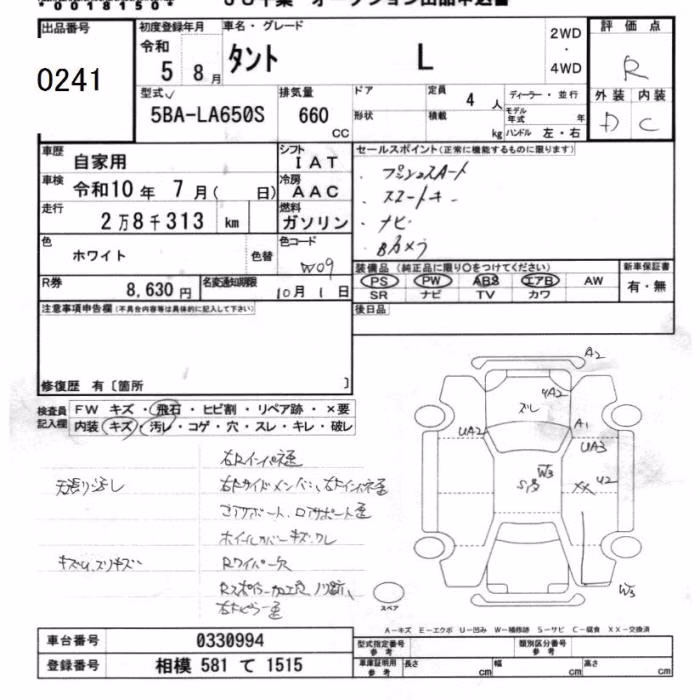 00181504
出品番号
0241
初度登録年月
令和
5 8月
車名・グレード
タント L
2WD
・
4WD
評価点
R
外装 内装
D C
型式
5BA-LA650S
排気量
660
CC
ドア
形状
定員
4 人
積載
kg
ディーラー・並行
モデル年式 年
ハンドル 左・右
車歴
自家用
シフト
IAT
車検
令和10年 7月( 日)
冷房
AAC
走行
2万8千313 km
燃料
ガソリン
色
ホワイト
色替
色コード
W09
R券
8,630円
名変通知期限
10月1日
セールスポイント(正常に機能するものに限ります)
・プッシュスタート
・スマートキー
・ナビ
・Bカメラ
装備品(純正品に限り○をつけてください)
PS PW ABS エアB AW
SR ナビ TV カワ
新車保証書
有・無
後日品
注意事項申告欄(不具合内容等は具体的に記入して下さい)
修復歴 有〔箇所 〕
検査員
記入欄
FW キズ・飛石・ヒビ割・リペア跡・×要
内装 キズ・汚レ・コゲ・穴・スレ・キレ・破レ
右Rインパネ歪
天張り汚レ
ホイールカバーキズ、ワレ
Rワイパー欠
A2
4A2
ズレ
UA2
A1
UA3
W3
XX
U2
W3
スペア
A-キズ E-エクボ U-凹み W-補修跡 S-サビ C-腐食 XX-交換済
車台番号
0330994
登録番号
相模 581 て 1515
型式指定番号
参考
類別区分番号
参考
車庫証明用
参考
長さ cm 幅 cm 高さ cm